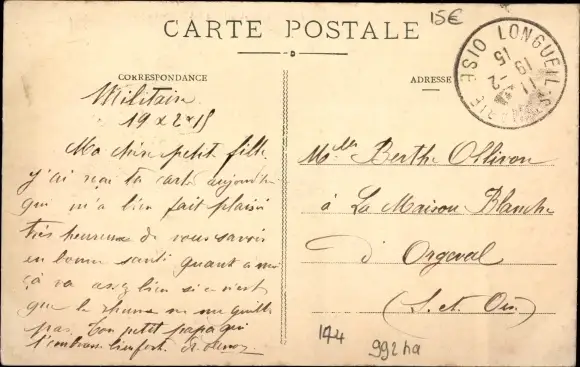 CARTE POSTALE
15€
CORRESPONDANCE
ADRESSE
LONGUEIL-STE MARIE OISE
11 -2
19 15
Militaire
19 x 2 x 15
Ma chère petite fille
j'ai reçu ta carte aujourd'hui
qui m'a bien fait plaisir
très heureuse de vous savoir
en bonne santé quant a moi
ça va assez bien si ce n'est
que le rhume ne me quitte
pas. Ton petit papa qui
t'embrasse bien fort.
Melle Berthe Ollivon
à La Maison Blanche
d'Orgeval
(S. et Oise)
144
992ha